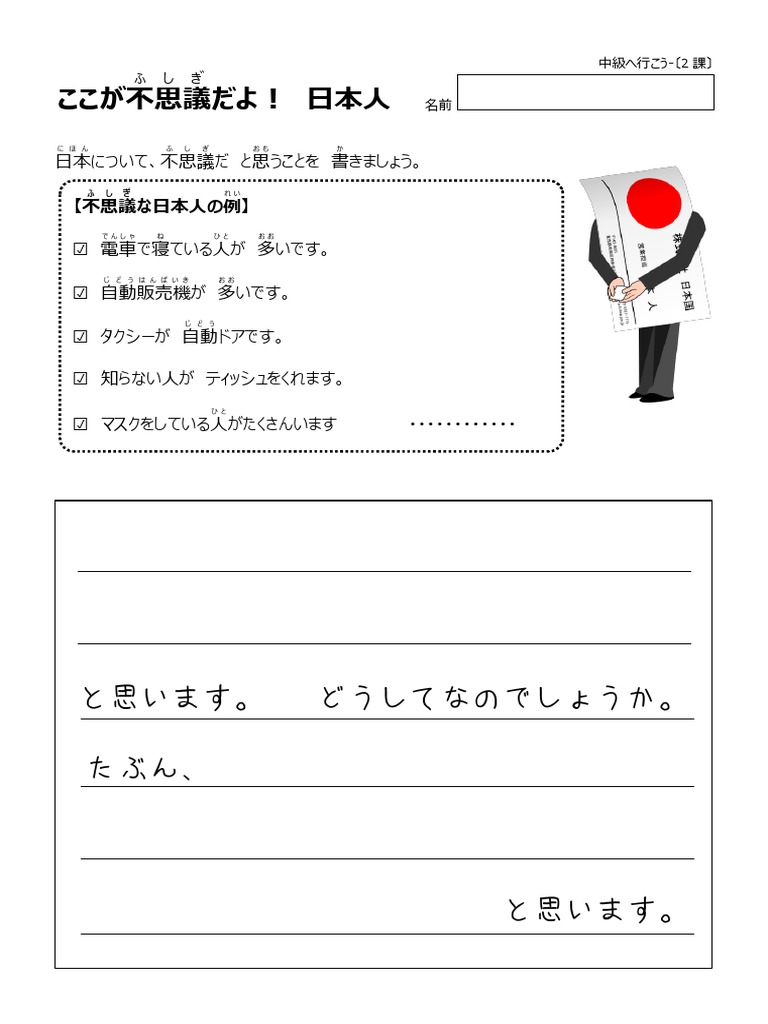 中級へ行こう-〔2 課〕
ここが不思議だよ！ 日本人
ふしぎ
名前
日本について、不思議だ と思うことを 書きましょう。
にほん ふしぎ おも か
【不思議な日本人の例】
ふしぎ れい
☑ 電車で寝ている人が 多いです。
でんしゃ ね ひと おお
☑ 自動販売機が 多いです。
じどうはんばいき おお
☑ タクシーが 自動ドアです。
じどう
☑ 知らない人が ティッシュをくれます。
☑ マスクをしている人がたくさんいます ・・・・・・・・・・・・
ひと
日本国
と思います。 どうしてなのでしょうか。
たぶん、
と思います。